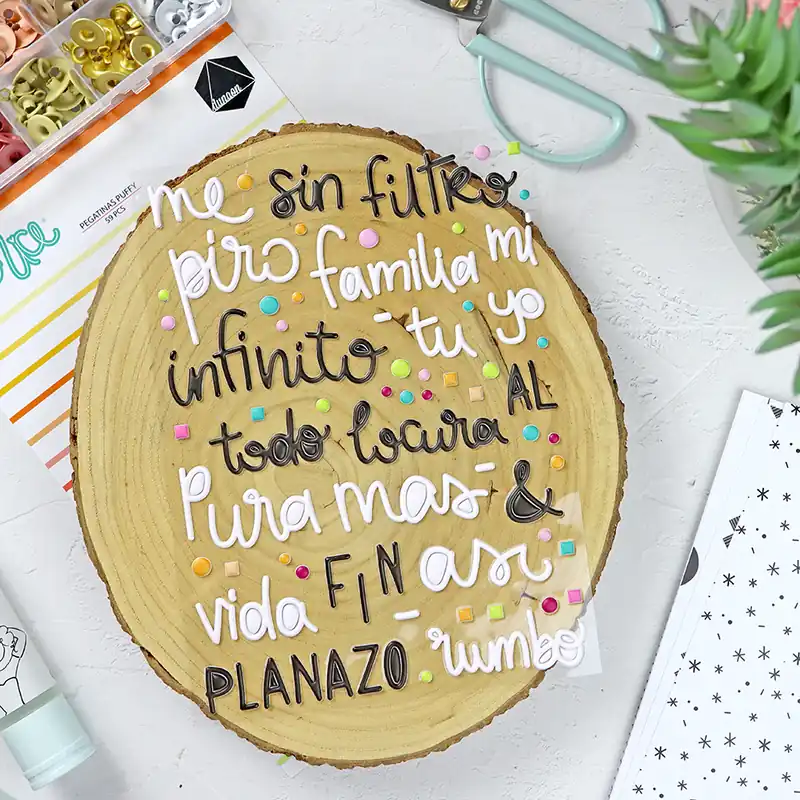 dunnon
PEGATINAS PUFFY
59 PCS
me sin filtro
piro familia mi
tu yo
infinito
AL
todo locura
Pura mas &
vida FIN asi
PLANAZO rumbo